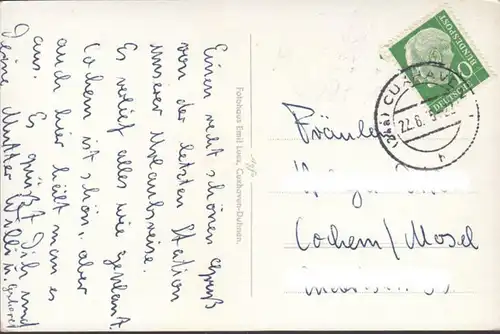 Einen recht schönen Gruß
von der letzten Station
unserer Urlaubsreise.
Es verlief alles wie geplant.
Cochem ist schön, aber
auch hier hält man es
aus.
Es grüßt Dich und
Deine Mutter Willi u.
Fotohaus Emil Luez, Cuxhaven-Duhnen.
DEUTSCHE BUNDESPOST
CUXHAVEN
22.6.
Fräulein
Cochem/Mosel